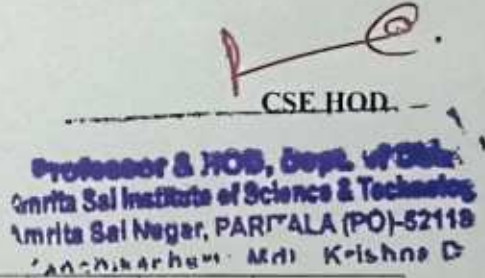 CSE HOD
Professor & HOD, Dept. of
Amrita Sai Institute of Science & Technolog
Amrita Sai Nagar, PARITALA (PO)-52118
Mdl Krishna D